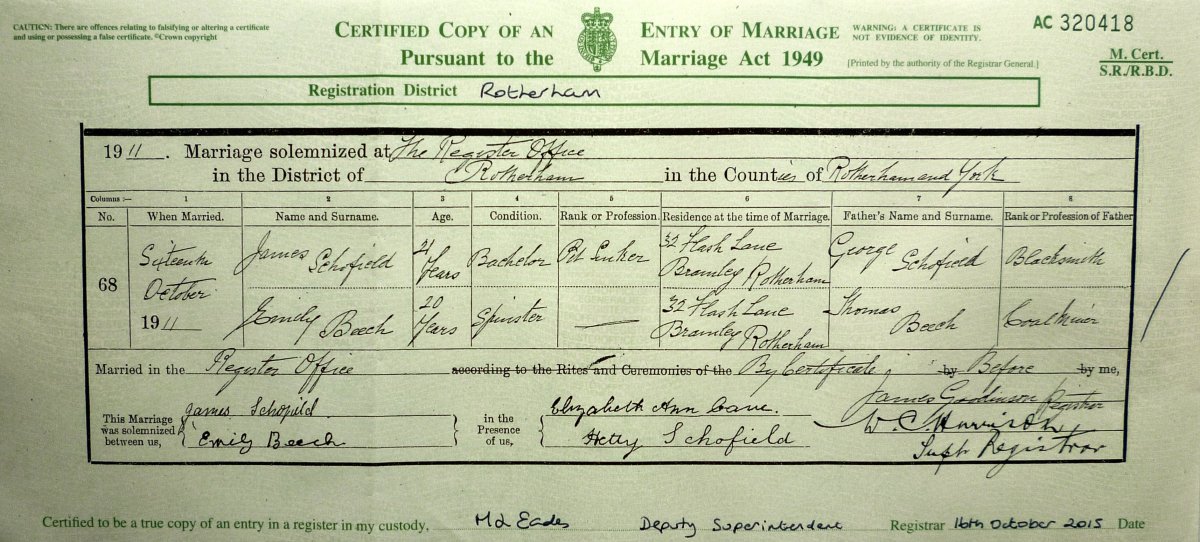 CAUTION: There are offences relating to falsifying or altering a certificate
and using or possessing a false certificate. ©Crown copyright
CERTIFIED COPY OF AN ENTRY OF MARRIAGE
Pursuant to the Marriage Act 1949
WARNING: A CERTIFICATE IS
NOT EVIDENCE OF IDENTITY.
[Printed by the authority of the Registrar General.]
AC 320418
M. Cert.
S.R./R.B.D.
Registration District Rotherham
1911. Marriage solemnized at The Register Office
in the District of Rotherham in the Counties of Rotherham and York
Columns :— 1 2 3 4 5 6 7 8
No. When Married. Name and Surname. Age. Condition. Rank or Profession. Residence at the time of Marriage. Father's Name and Surname. Rank or Profession of Father
68 Sixteenth October 1911
James Schofield 21 Years Bachelor Pit Sinker 32 Flash Lane Bramley Rotherham George Schofield Blacksmith
Emily Beech 20 Years Spinster — 32 Flash Lane Bramley Rotherham Thomas Beech Coal Miner
Married in the Register Office according to the Rites and Ceremonies of the By Certificate, by Before by me,
This Marriage was solemnized between us, James Schofield Emily Beech
in the Presence of us, Elizabeth Ann Cave. Hetty Schofield
James Registrar
W. C. Harrison
Supt Registrar
Certified to be a true copy of an entry in a register in my custody, Eades Deputy Superintendent Registrar 16th October 2015 Date